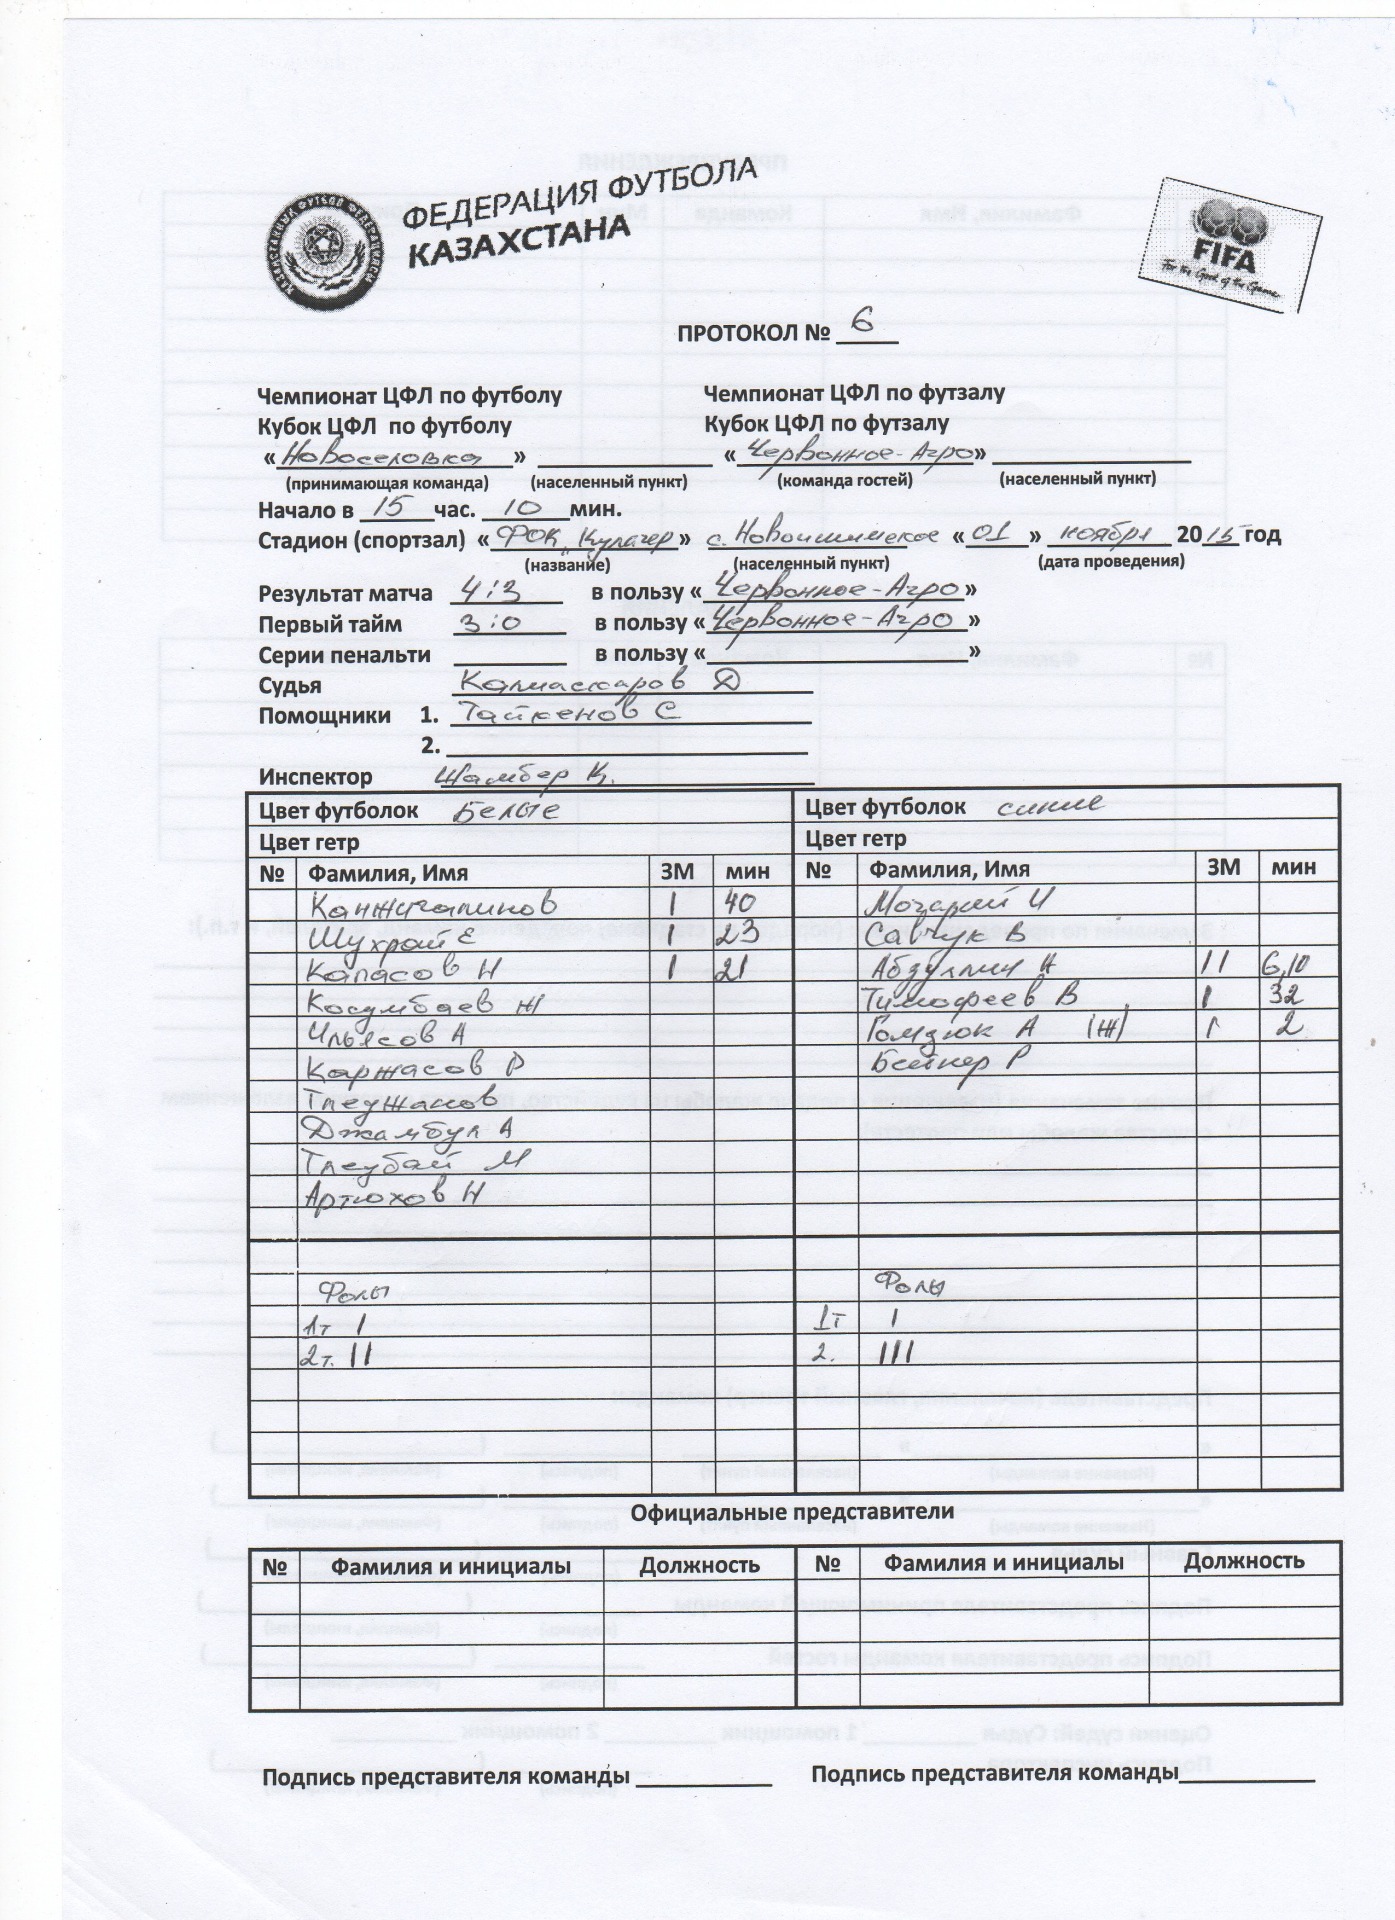 ФЕДЕРАЦИЯ ФУТБОЛА
КАЗАХСТАНА
FIFA
For the Good of the Game
ПРОТОКОЛ № 6
Чемпионат ЦФЛ по футболу Чемпионат ЦФЛ по футзалу
Кубок ЦФЛ по футболу Кубок ЦФЛ по футзалу
«Новоселовка» «Червонное-Агро»
(принимающая команда) (населенный пункт) (команда гостей) (населенный пункт)
Начало в 15 час. 10 мин.
Стадион (спортзал) «ФОК „Кулагер» с. Новоишимское «01» ноября 2015 год
(название) (населенный пункт) (дата проведения)
Результат матча 4:3 в пользу «Червонное-Агро»
Первый тайм 3:0 в пользу «Червонное-Агро»
Серии пенальти в пользу « »
Судья Калиаскаров Д
Помощники 1. Тайкенов С
2.
Инспектор Шамбер К.
Цвет футболок Белые Цвет футболок синие
Цвет гетр Цвет гетр
№ Фамилия, Имя ЗМ мин № Фамилия, Имя ЗМ мин
Канжигалинов 1 40 И
Шухрай Е 1 23 Савчук В
Капасов Н 1 21 Абдуллин А 11 6,10
Косумбаев Ж Тимофеев В 1 32
Ильясов А Гомзюк А (Ж) 1 2
Каржасов Р Бейкер Р
Тлеужанов
Джамбул А
Тлеубай М
Артюхов Н
Фолы Фолы
1т I 1т I
2т. II 2. III
Официальные представители
№ Фамилия и инициалы Должность № Фамилия и инициалы Должность
Подпись представителя команды Подпись представителя команды